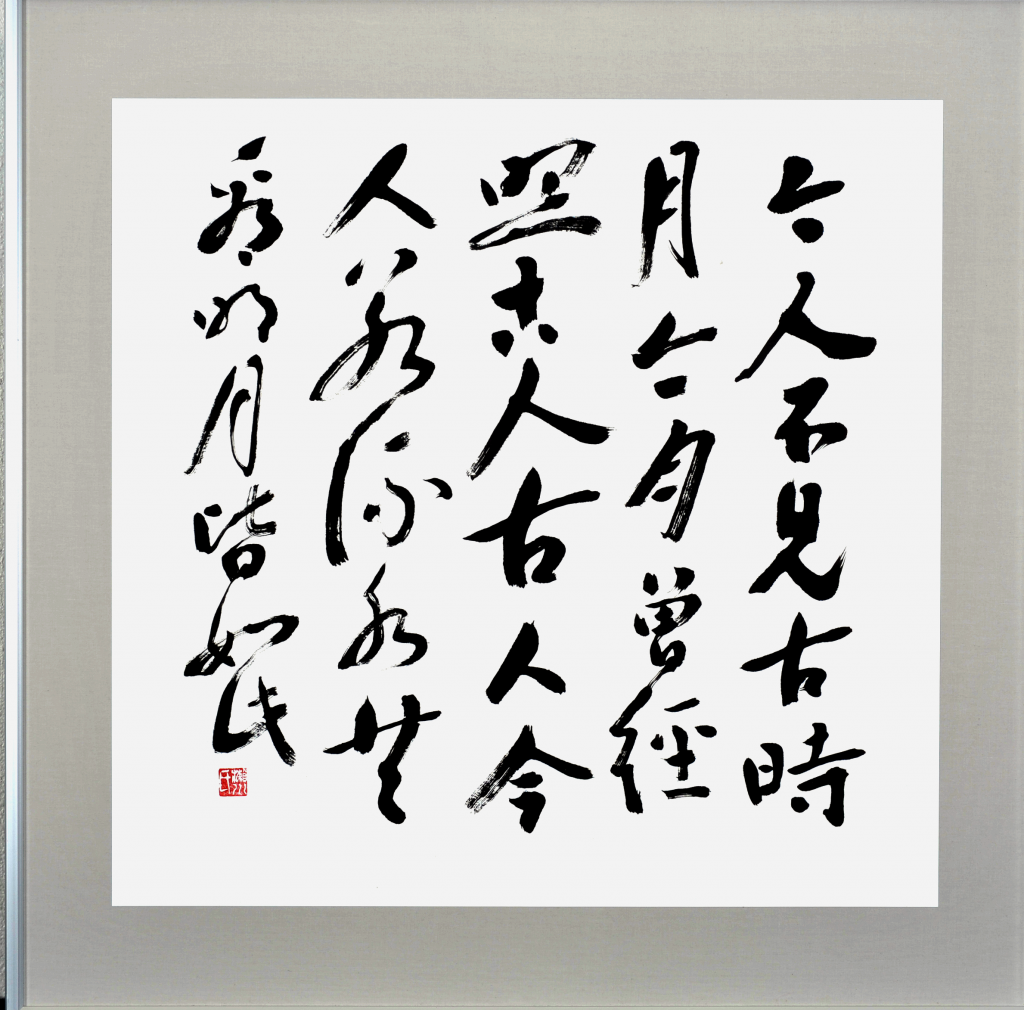 今人不見古時
月今月曾經
照古人古人今
人若流水共
看明月皆如此